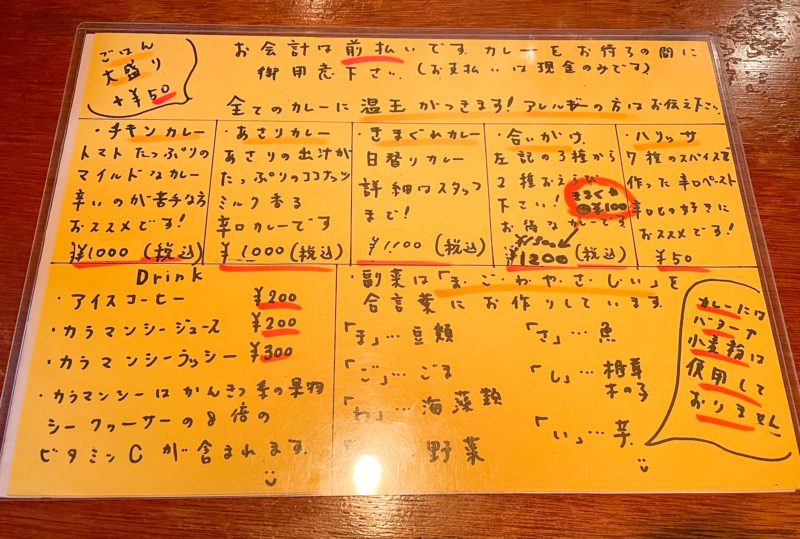 ごはん
大盛り
+¥50
お会計は前払いです。カレーをお待ちの間に
御用意下さい。(お支払いは現金のみです)
全てのカレーに温玉がつきます!アレルギーの方はお伝え下さい
・チキンカレー
トマトたっぷりの
マイルドなカレー
辛いのが苦手な方
おススメです!
¥1000(税込)
・あさりカレー
あさりの出汁が
たっぷりのココナッツ
ミルク香る
辛口カレーです
¥1000(税込)
・きまぐれカレー
日替りカレー
詳細はスタッフ
まで!
¥1,100(税込)
・合いがけ
左記の3種から
2種お
下さい!
きまぐれ
¥100
お得なカレーです
¥1300
¥1200(税込)
・ハリッサ
7種のスパイスで
作った辛口ペースト
辛口の好きに
おススメです!
¥50
Drink
・アイスコーヒー ¥200
・カラマンシージュース ¥200
・カラマンシーラッシー ¥300
・カラマンシーはかんきつ系の果物
シークヮーサーの8倍の
ビタミンCが含まれます。
・副菜は「ま・ご・わ・や・さ・しい」を
合言葉にお作りしています。
「ま」…豆類
「ご」…ごま
「わ」…海藻類
野菜
「さ」…魚
「し」…椎茸
木の子
「い」…芋
カレーには
バターや
小麦粉は
使用して
おりません